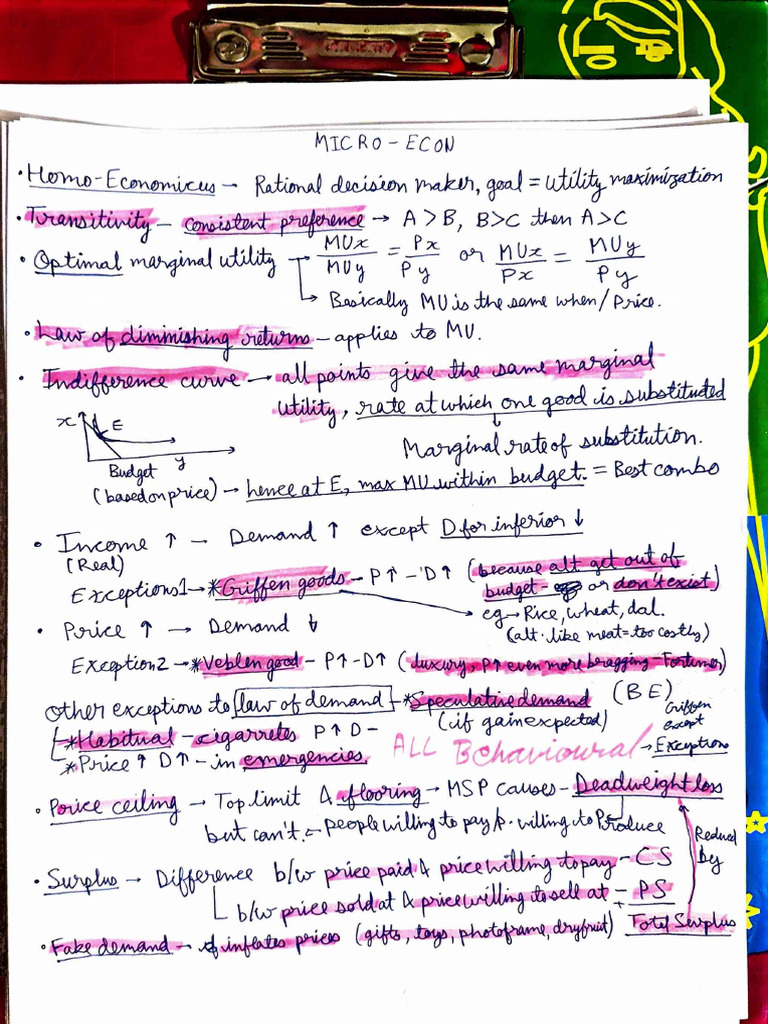 MICRO-ECON
• Homo-Economicus → Rational decision maker, goal = utility maximization
• Transitivity – consistent preference → A > B, B > C then A > C
• Optimal marginal utility → MUx/MUy = Px/Py or MUx/Px = MUy/Py
↳ Basically MU is the same when / Price.
• Law of diminishing returns – applies to MU.
• Indifference curve → all points give the same marginal
utility, rate at which one good is substituted
↓
Marginal rate of substitution.
x E
Budget y
(based on price) → hence at E, max MU within budget. = Best combo
• Income ↑ → Demand ↑ except D for inferior ↓
(Real)
Exceptions1 → *Griffen goods – P↑ – D↑ (because alt get out of
budget – or don't exist)
eg → Rice, wheat, dal.
(alt. like meat = too costly)
• Price ↑ → Demand ↓
Exception2 → *Veblen good – P↑ – D↑ (luxury, P↑ even more bragging – Fortuner)
Other exceptions to law of demand → *Speculative demand (BE)
(if gain expected)
*Habitual – cigarretes P↑ D –
*Price ↑ D↑ – in emergencies.
ALL Behavioural → Exceptions
Griffen
except
• Price ceiling → Top limit & flooring → MSP causes – Deadweight loss
but can't. ← people willing to pay/p. willing to Produce
Reduced
By
• Surplus → Difference b/w price paid & price willing to pay – CS
b/w price sold at & price willing to sell at – PS
+
Total Surplus
• Fake demand → inflates prices (gifts, toys, photoframe, dryfruit)